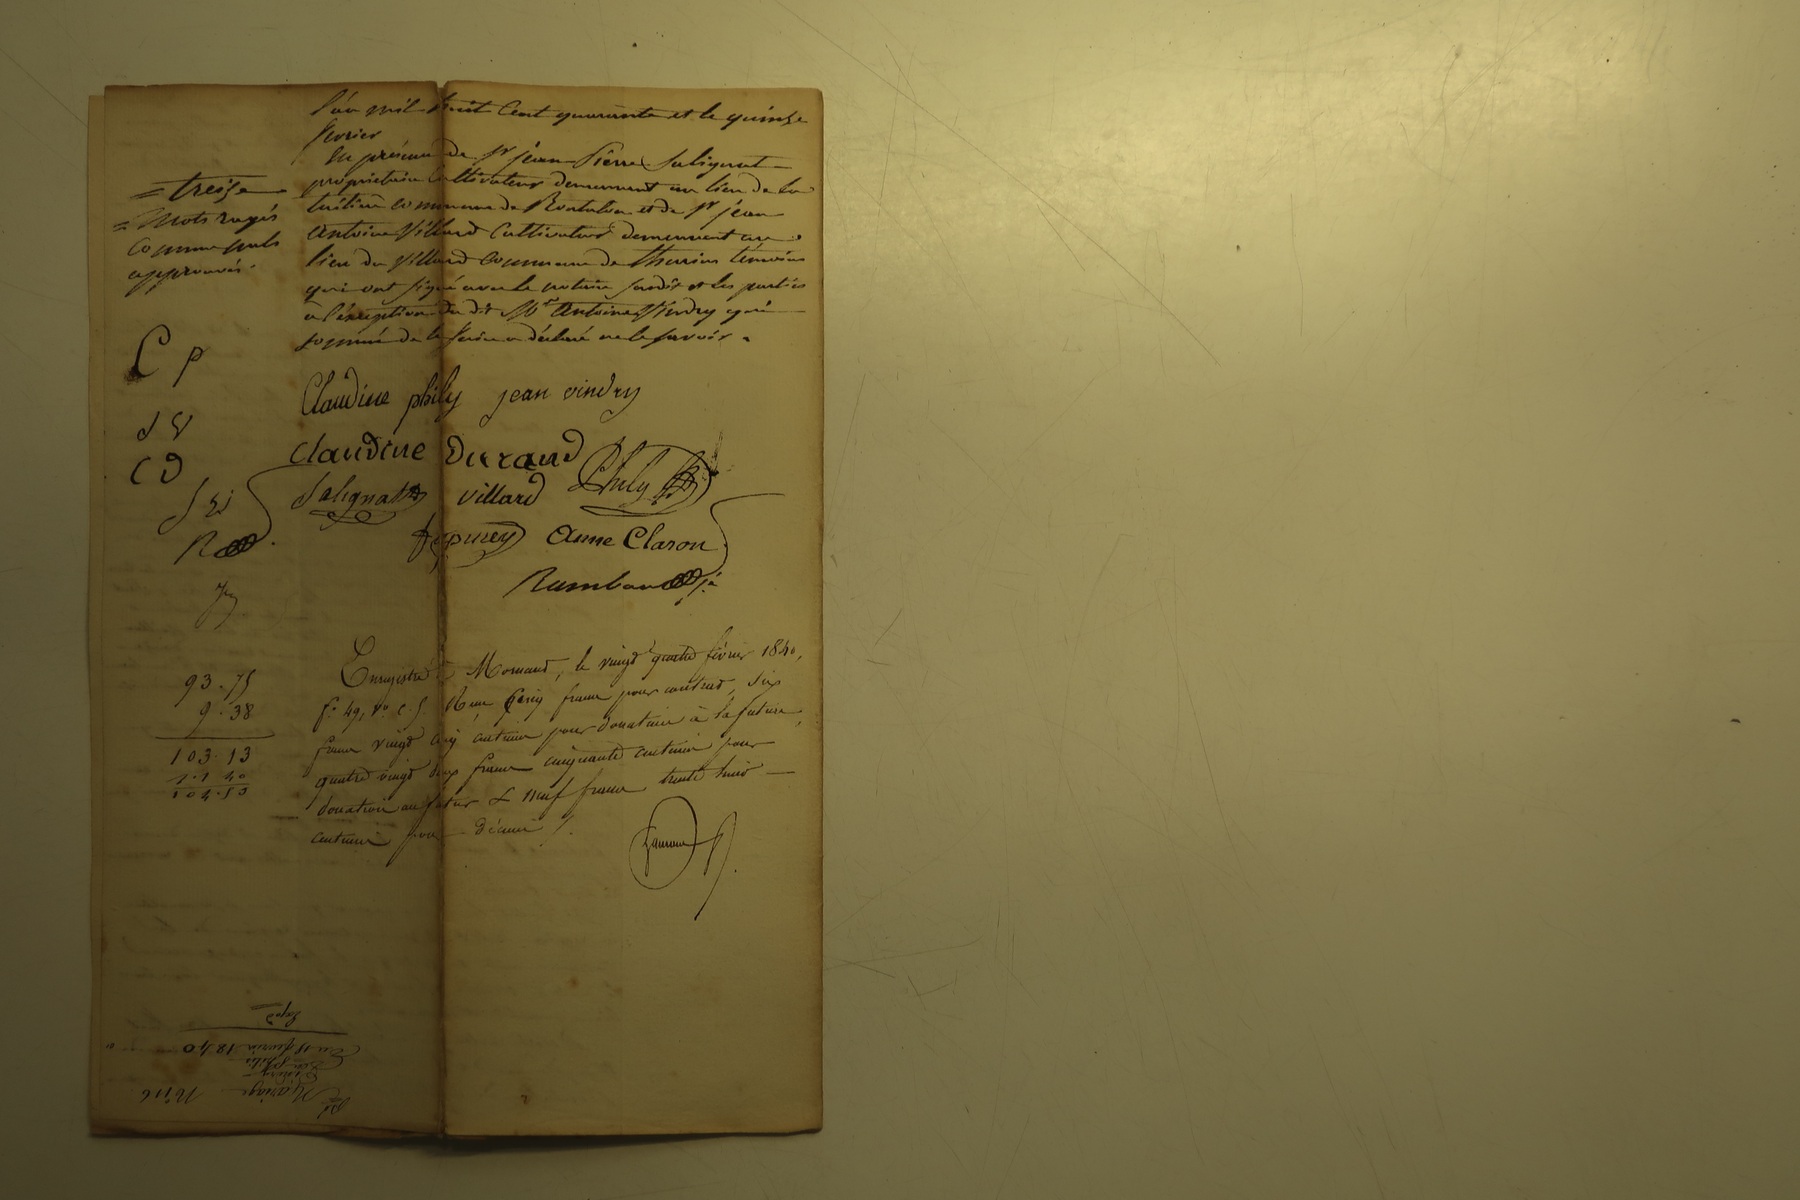 l'an mil huit Cent quarante et le quinze
fevrier
En présence de Sr jean Pierre Salignat
propriétaire Cultivateur demeurant au lieu de la
commune de Rontalon et de Sr jean
Antoine Villard Cultivateur demeurant au
lieu du Villard Commune de thurins témoins
qui ont signé avec le notaire susdit et les parties
a l'éxception du dit Mr Antoine Vindry qui
sommé de le faire a déclaré ne le savoir .
= treize
= Mots rayés
comme nuls
approuvés.
C p
J V
C D
Claudine phily jean vindry
Claudine Durand Phily
Salignat villard
Anne Claron
Rambaud
Enregistré à Mornant, le vingt quatre février 1840,
fo 49, Vo c. 5. Reçu Cinq francs pour contrat, Six
francs vingt cinq centimes pour donation à la future,
quatre vingt deux francs cinquante centimes pour
donation au futur & neuf francs trente huit
centimes pour décime /.
93.75
9.38
103.13
1.40
104.53
No 116
Mariage
Vindry
Phily
Du 15 février 1840